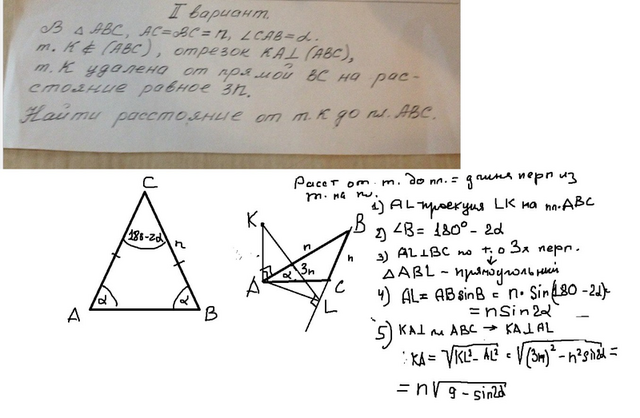 II вариант.
В △ ABC, AC=BC=n, ∠CAB=α.
т. K ∉ (ABC), отрезок KA⊥(ABC),
т. K удалена от прямой BC на рас-
стояние равное 3n.
Найти расстояние от т. K до пл. ABC.
C
180-2α
n
α
α
A
B
K
B
n
n
α
3n
A
C
L
Расст от т. до пл. = длине перп из
т. на пл.
1) AL проекция LK на пл. ABC
2) ∠B = 180° - 2α
3) AL⊥BC по т. о 3х перп.
△ABL - прямоугольний
4) AL = AB sinB = n · Sin(180-2α)=
= n Sin2α
5) KA⊥пл ABC → KA⊥AL
KA = √KL²-AL² = √(3n)²-n²sin2α =
= n√9 - sin2α